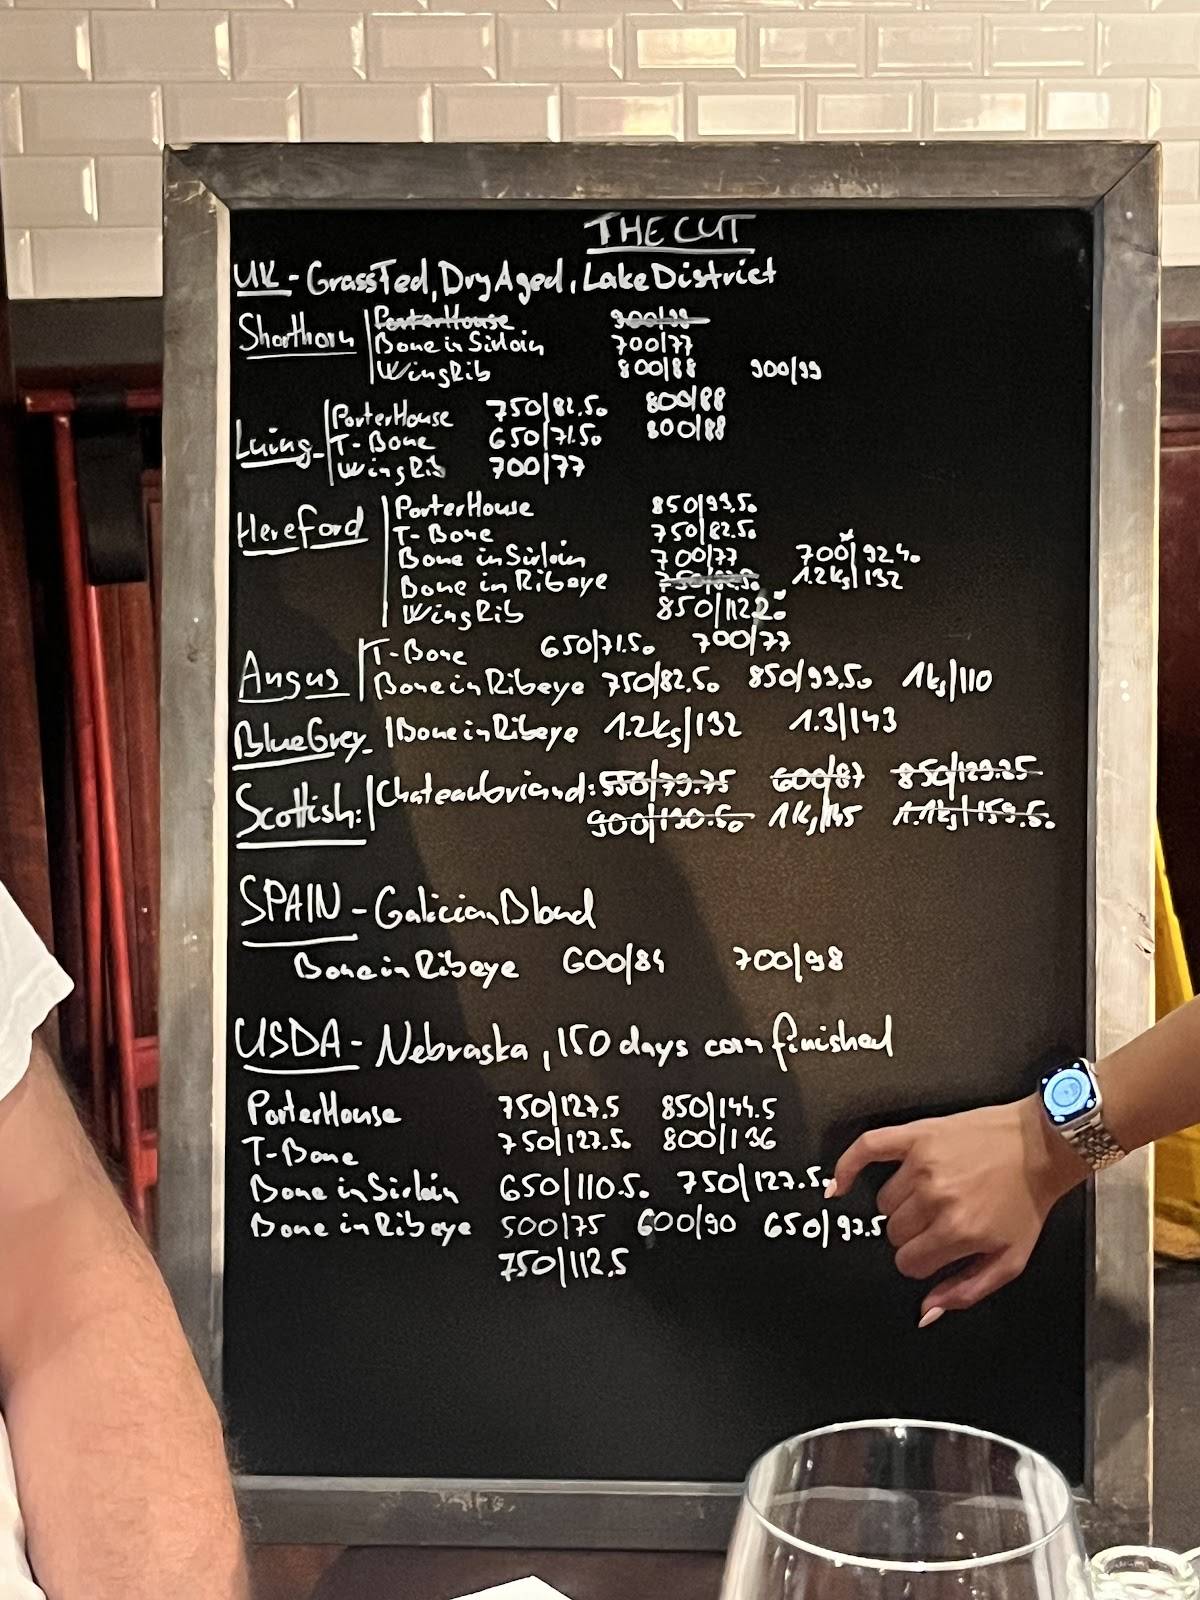 THE CUT
UK - Grass Fed, Dry Aged, Lake District
Shorthorn | PorterHouse 900/99
Bone in Sirloin 700/77
Wing Rib 800/88 900/99
Luing | PorterHouse 750/82.50 800/88
T-Bone 650/71.50 800/88
Wing Rib 700/77
Hereford | PorterHouse 850/93.50
T-Bone 750/82.50
Bone in Sirloin 700/77 700*/92.40
Bone in Ribeye 750/82.50 1.2kg/132
Wing Rib 850/112.20
Angus | T-Bone 650/71.50 700/77
Bone in Ribeye 750/82.50 850/93.50 1kg/110
Blue Grey | Bone in Ribeye 1.2kg/132 1.3/143
Scottish: | Chateaubriand: 550/79.75 600/87 850/123.25
900/130.50 1Kg/145 1.1kg/159.50
SPAIN - Galician Blond
Bone in Ribeye 600/84 700/98
USDA - Nebraska, 150 days corn finished
PorterHouse 750/127.5 850/144.5
T-Bone 750/127.50 800/136
Bone in Sirloin 650/110.50 750/127.50
Bone in Ribeye 500/75 600/90 650/97.5
750/112.5